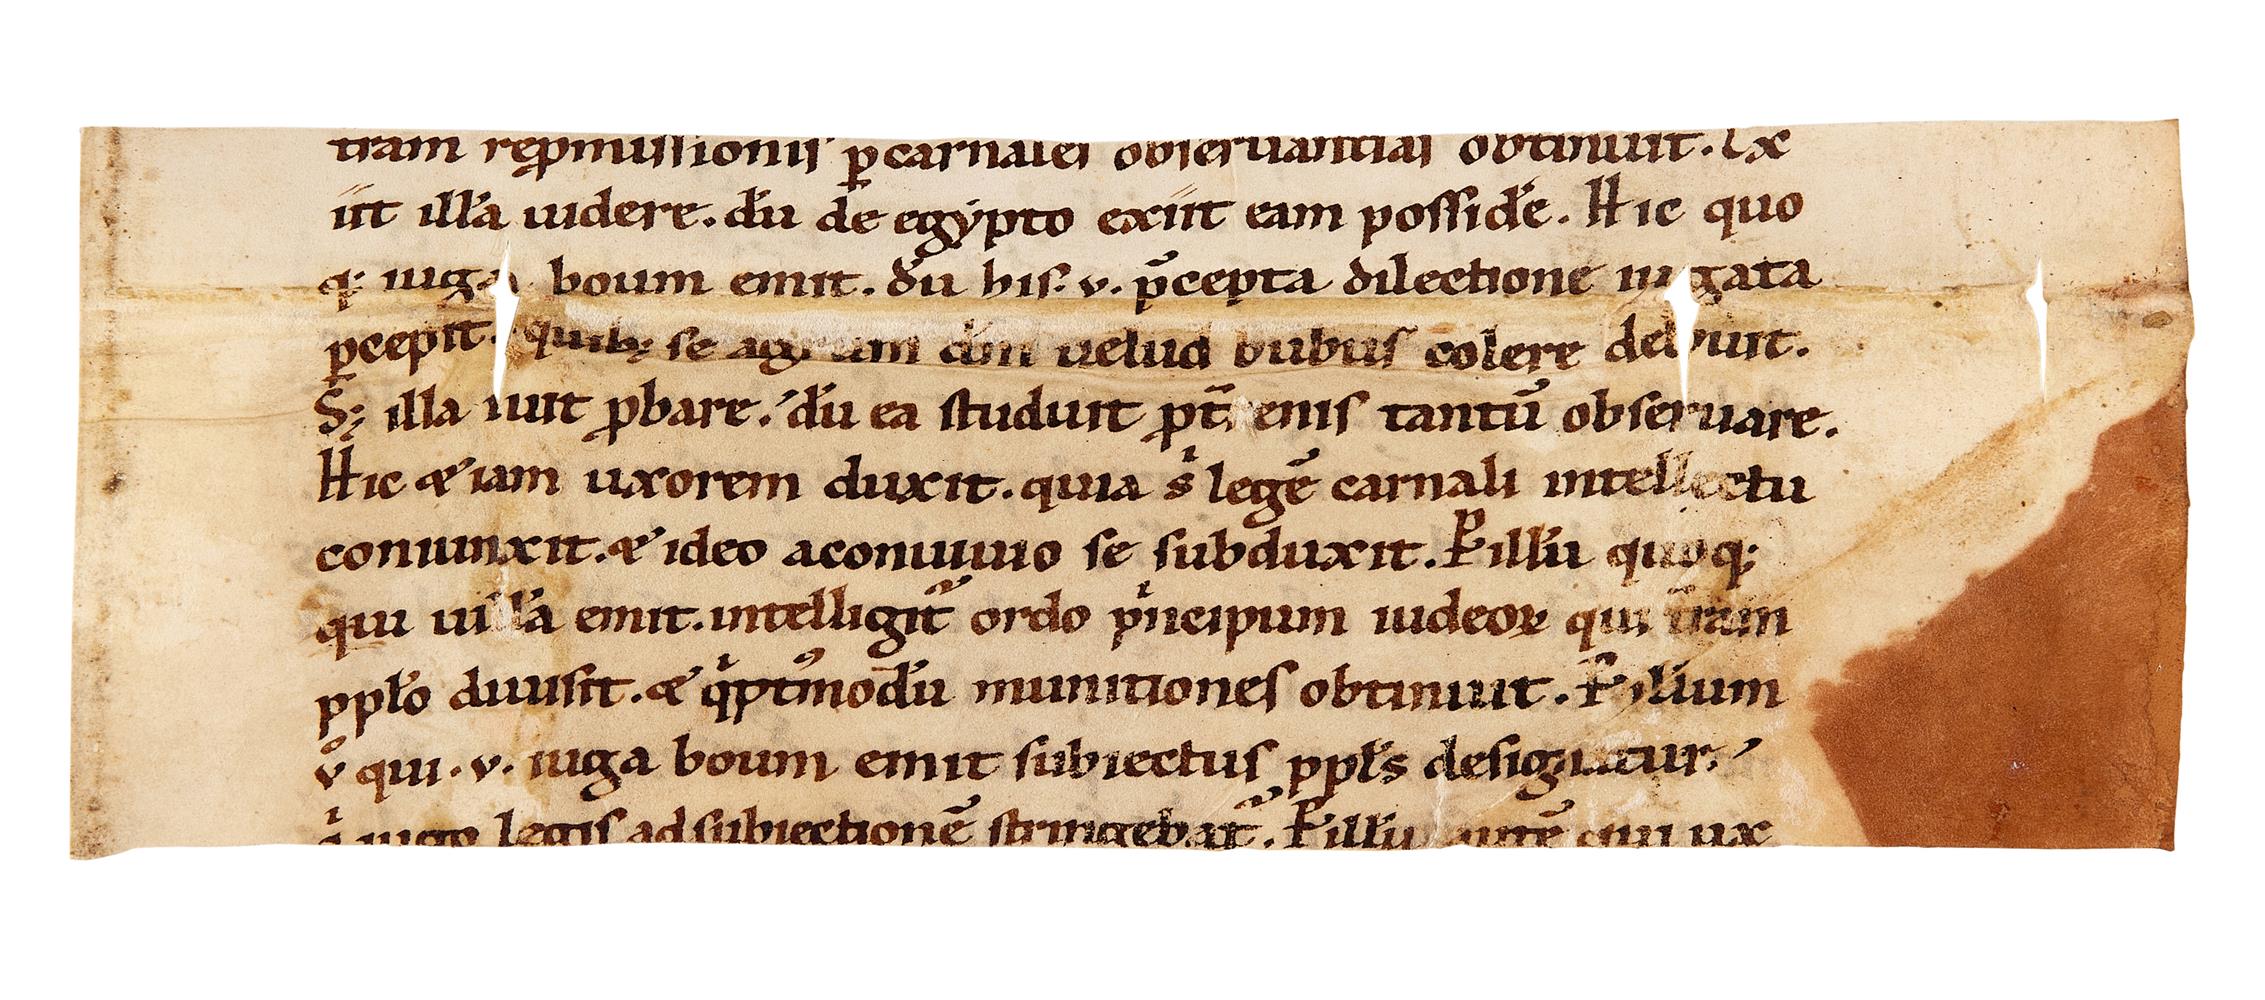 tram rep̄missionis p̱carnales obseruantias obtinuit. Ex
iit illā uidere. dū de egypto exiit eam possidē. Hic quo
q; iuga boum emit. dū his .v. p̄cepta dilectione iugata
p̱cepit. quib; se agrum dn̄i uelud bubus colere debuit.
S; illa iuit ꝓbare. dū ea studuit ꝓt̄ enis tantū obseruare.
Hic &iam uxorem duxit. quia s̄ legē carnali intellectu
coniunxit. & ideo aconuiuio se subduxit. Ꝑ illū quoq;
qui uillā emit. intelligit᷑ ordo pͥncipum iudeoꝝ qui t̄ram
ppło diuisit. & qͥptᵒmodū munitiones obtinuit. Ꝑ illum
vͦ qui .v. iuga boum emit subiectus ppłs designatur.
qͥ iugo legis adsubiectionē stringebat᷑. Ꝑ illū autē qui ux